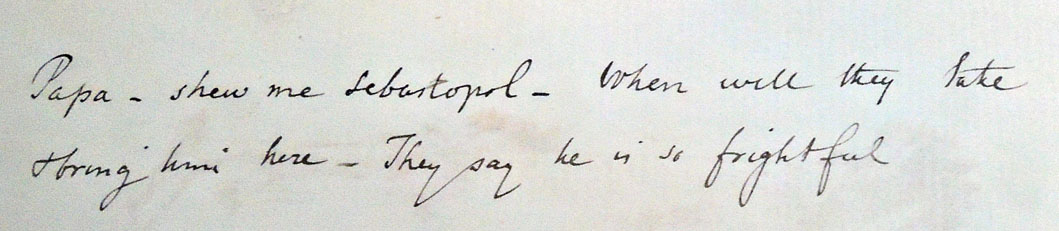 Papa - shew me Sebastopol - When will they take
& bring him here - They say he is so frightful